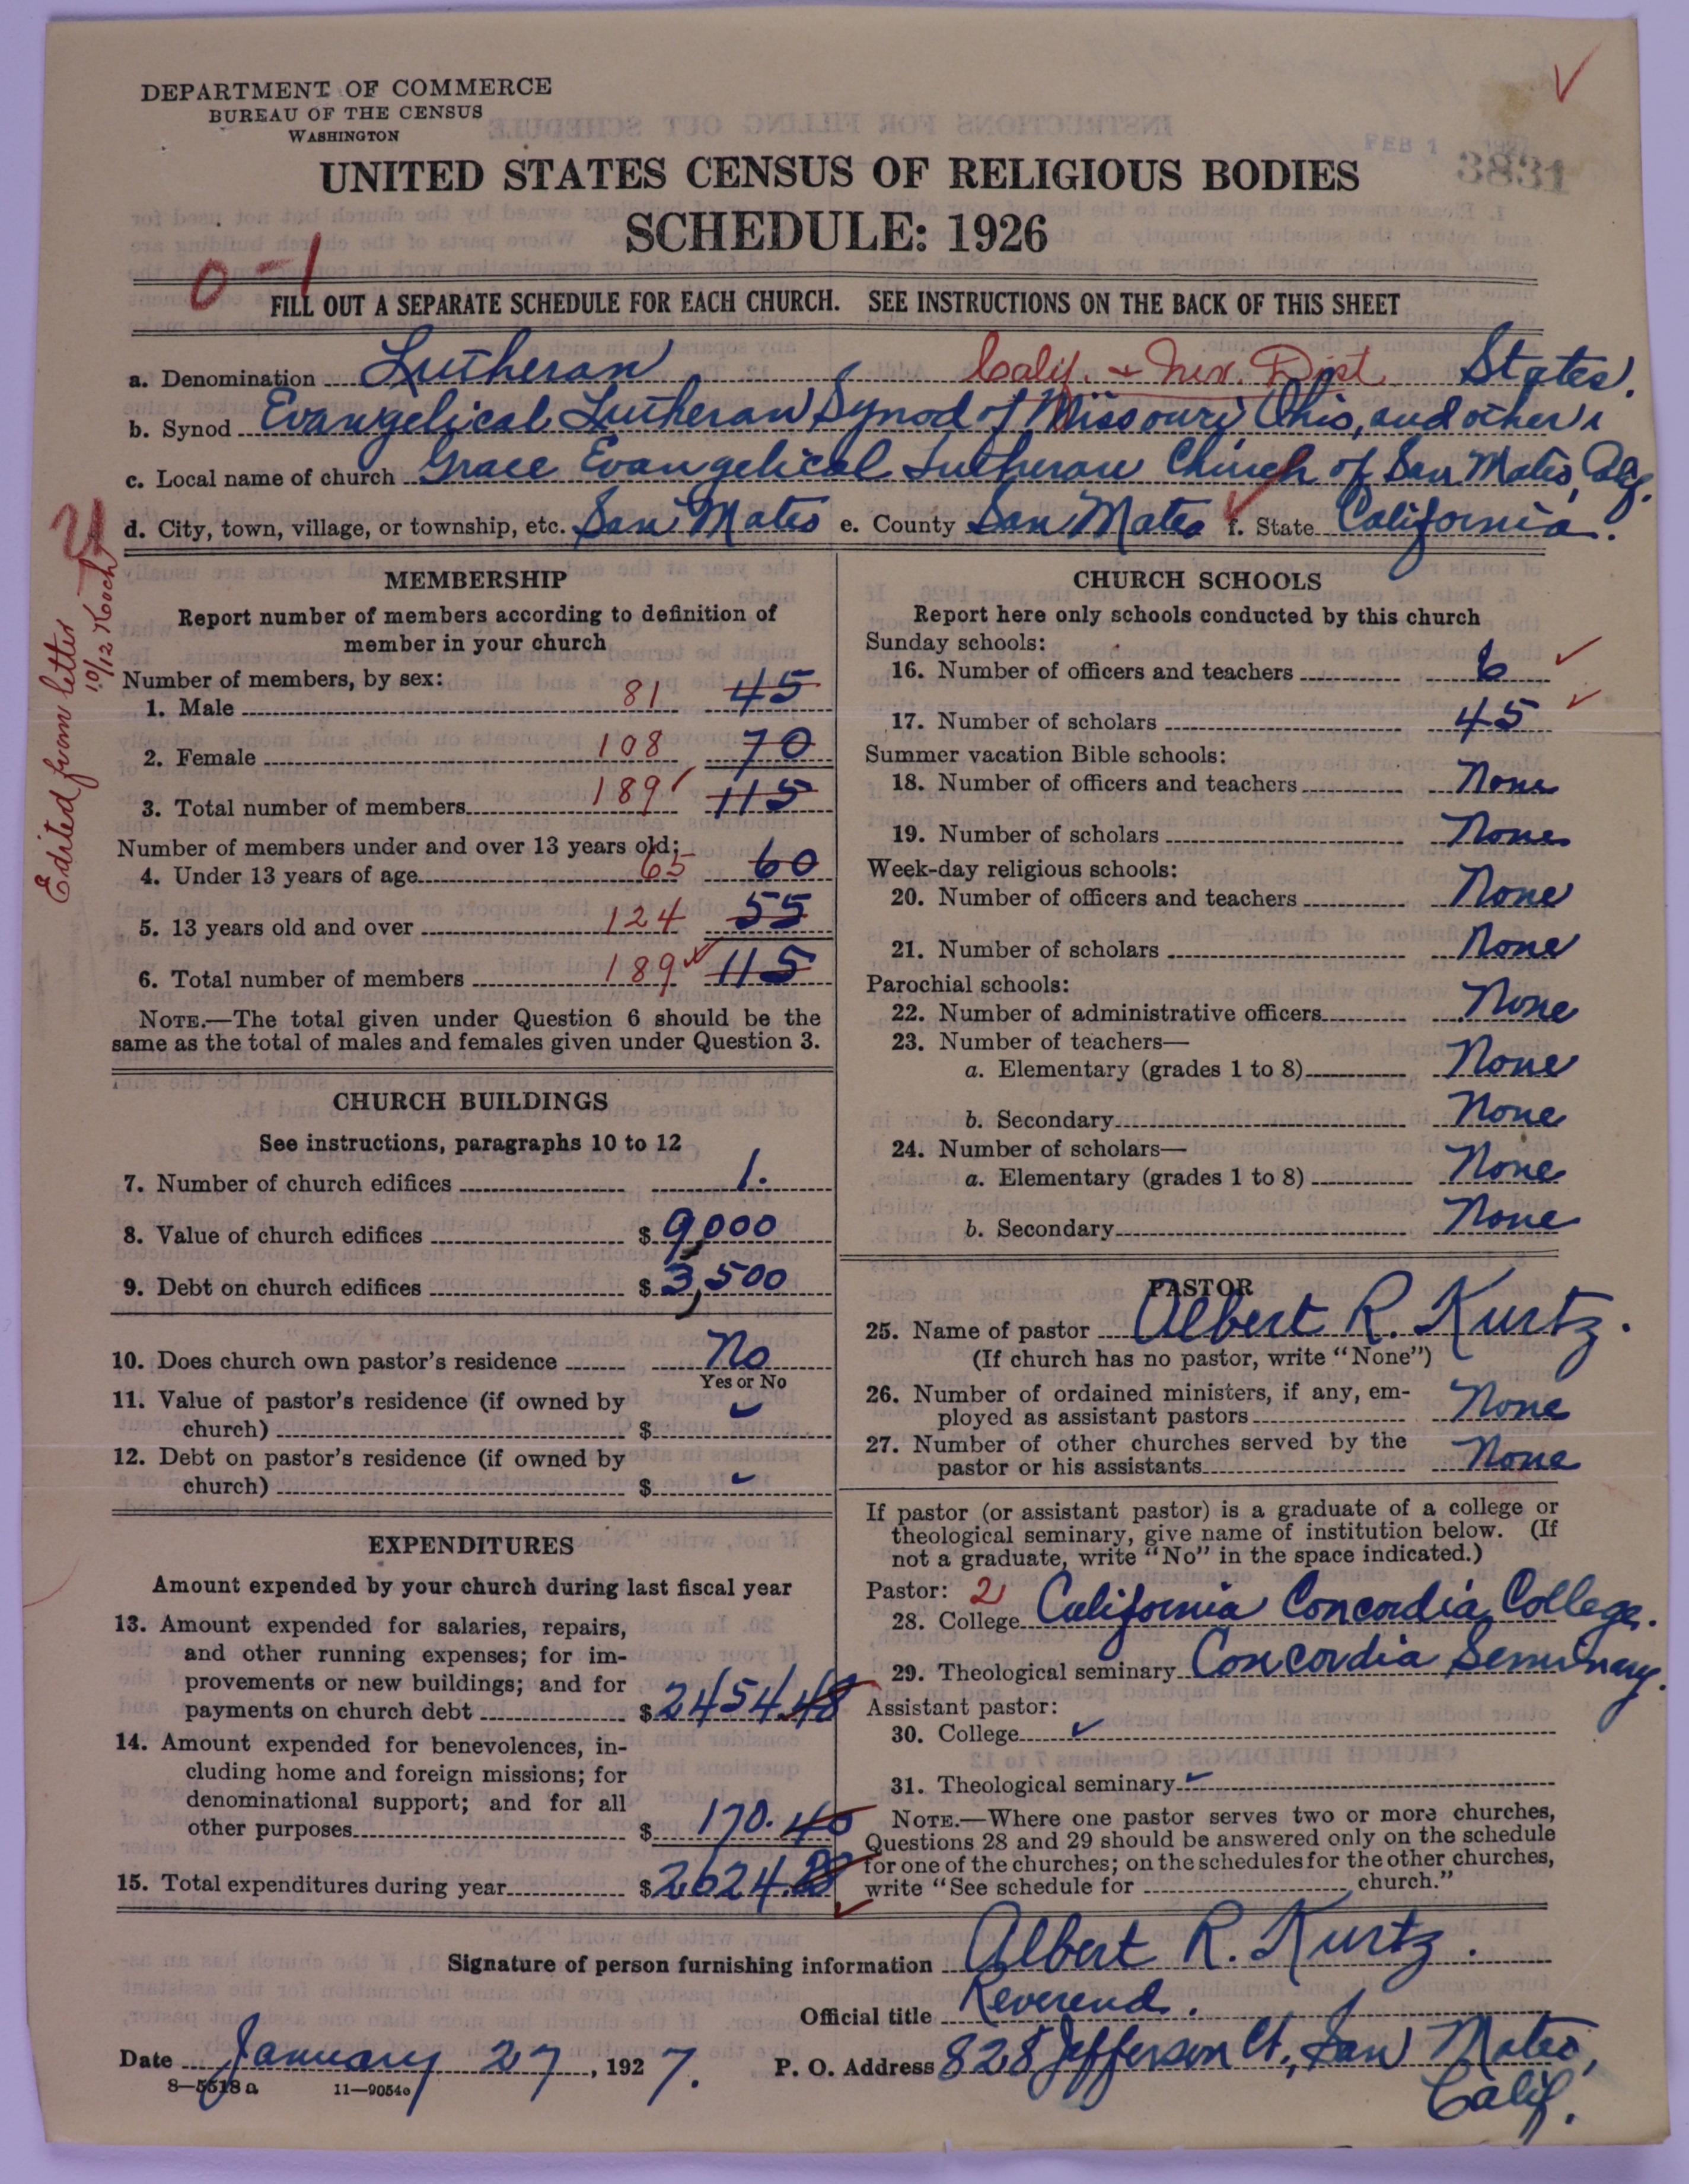 DEPARTMENT OF COMMERCE
BUREAU OF THE CENSUS
WASHINGTON
FEB 1
3831
UNITED STATES CENSUS OF RELIGIOUS BODIES
SCHEDULE: 1926
0-1
FILL OUT A SEPARATE SCHEDULE FOR EACH CHURCH. SEE INSTRUCTIONS ON THE BACK OF THIS SHEET
a. Denomination Lutheran Calif. + Nev. Dist States.
b. Synod Evangelical Lutheran Synod of Missouri, Ohio, and other
c. Local name of church Grace Evangelical Lutheran Church of San Mateo, Calif.
d. City, town, village, or township, etc. San Mateo e. County San Mateo f. State California.
Edited from letter
10/12 Koch
MEMBERSHIP
Report number of members according to definition of
member in your church
Number of members, by sex:
1. Male 81 45
2. Female 108 70
3. Total number of members 189 115
Number of members under and over 13 years old:
4. Under 13 years of age 65 60
5. 13 years old and over 124 55
6. Total number of members 189 115
NOTE.—The total given under Question 6 should be the
same as the total of males and females given under Question 3.
CHURCH BUILDINGS
See instructions, paragraphs 10 to 12
7. Number of church edifices 1.
8. Value of church edifices $ 9,000
9. Debt on church edifices $ 3,500
10. Does church own pastor's residence No
Yes or No
11. Value of pastor's residence (if owned by
church) $
12. Debt on pastor's residence (if owned by
church) $
EXPENDITURES
Amount expended by your church during last fiscal year
13. Amount expended for salaries, repairs,
and other running expenses; for im-
provements or new buildings; and for
payments on church debt $ 2454.48
14. Amount expended for benevolences, in-
cluding home and foreign missions; for
denominational support; and for all
other purposes $ 170.40
15. Total expenditures during year $ 2624.88
CHURCH SCHOOLS
Report here only schools conducted by this church
Sunday schools:
16. Number of officers and teachers 6
17. Number of scholars 45
Summer vacation Bible schools:
18. Number of officers and teachers None
19. Number of scholars None
Week-day religious schools:
20. Number of officers and teachers None
21. Number of scholars None
Parochial schools:
22. Number of administrative officers None
23. Number of teachers—
a. Elementary (grades 1 to 8) None
b. Secondary None
24. Number of scholars—
a. Elementary (grades 1 to 8) None
b. Secondary None
PASTOR
25. Name of pastor Albert R. Kurtz.
(If church has no pastor, write "None")
26. Number of ordained ministers, if any, em-
ployed as assistant pastors None
27. Number of other churches served by the
pastor or his assistants None
If pastor (or assistant pastor) is a graduate of a college or
theological seminary, give name of institution below. (If
not a graduate, write "No" in the space indicated.)
Pastor: 2
28. College California Concordia College.
29. Theological seminary Concordia Seminary.
Assistant pastor:
30. College
31. Theological seminary
NOTE.—Where one pastor serves two or more churches,
Questions 28 and 29 should be answered only on the schedule
for one of the churches; on the schedules for the other churches,
write "See schedule for church."
Signature of person furnishing information Albert R. Kurtz.
Official title Reverend.
Date January 27, 1927. P. O. Address 828 Jefferson Ct., San Mateo,
Calif.
8-5518a 11-9054a